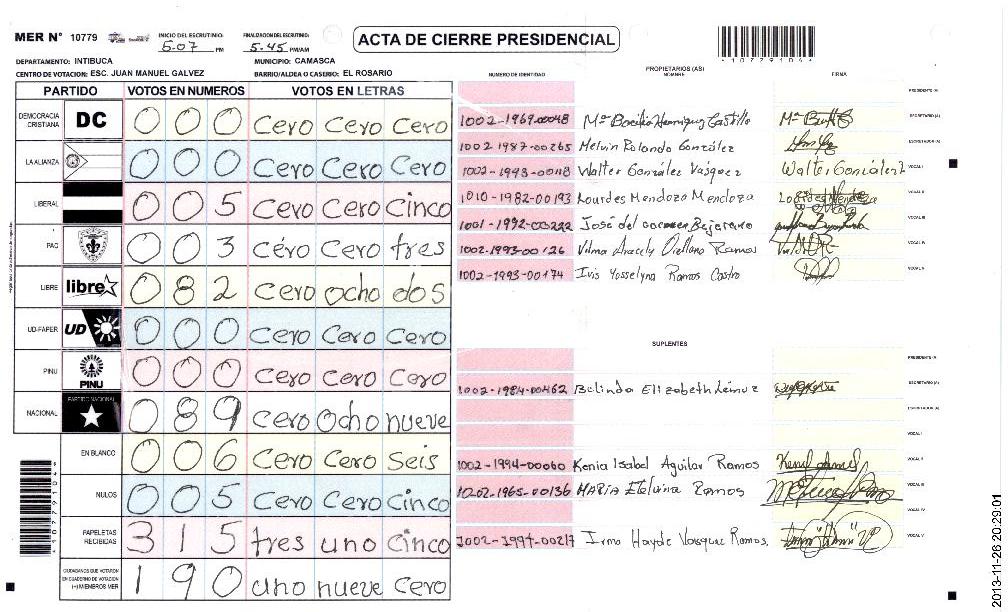 MER N° 10779
INICIO DEL ESCRUTINIO: 5.07 PM
FINALIZACION DEL ESCRUTINIO: 5.45 PM/AM
ACTA DE CIERRE PRESIDENCIAL
DEPARTAMENTO: INTIBUCA
MUNICIPIO: CAMASCA
CENTRO DE VOTACION: ESC. JUAN MANUEL GALVEZ
BARRIO/ALDEA O CASERIO: EL ROSARIO
PARTIDO VOTOS EN NUMEROS VOTOS EN LETRAS
DEMOCRACIA CRISTIANA DC 0 0 0 Cero Cero Cero
LA ALIANZA 0 0 0 Cero Cero Cero
LIBERAL 0 0 5 Cero Cero Cinco
PAC 0 0 3 Cero Cero tres
LIBRE libre 0 8 2 Cero ocho dos
UD-FAPER UD 0 0 0 Cero Cero Cero
PINU PINU 0 0 0 Cero Cero Cero
NACIONAL PARTIDO NACIONAL 0 8 9 Cero Ocho nueve
EN BLANCO 0 0 6 Cero Cero Seis
NULOS 0 0 5 Cero Cero Cinco
PAPELETAS RECIBIDAS 3 1 5 tres uno Cinco
CIUDADANOS QUE VOTARON EN CUADERNO DE VOTACION (+) MIEMBROS MER 1 9 0 uno nueve Cero
PROPIETARIOS (AS)
NUMERO DE IDENTIDAD NOMBRE FIRMA
PRESIDENTE (A)
1002-1969-00048 Mª Basilia Henriquez Castillo SECRETARIO (A)
1002 1987-00265 Melvin Rolando González ESCRUTADOR (A)
1002-1993-00118 Walter González Vasquez Walter González V VOCAL I
1010-1982-00193 Lourdes Mendoza Mendoza Lourdes Mendoza VOCAL II
1001-1992-00222 José del carmen Bejarano VOCAL III
1002-1993-00126 Vilma Aracely Orellana Ramos VOCAL IV
1002-1993-00174 Ivis Yosselyna Ramos Castro VOCAL V
SUPLENTES
PRESIDENTE (A)
1002-1984-00462 Belinda Elizabeth Lémuz SECRETARIO (A)
ESCRUTADOR (A)
VOCAL I
1002-1994-00060 Kenia Isabel Aguilar Ramos VOCAL II
1002-1965-00136 MARIA Etelvina Ramos VOCAL III
VOCAL IV
1002-1997-00217 Irma Hayde Vasquez Ramos. VOCAL V
2013-11-26 20:29:01